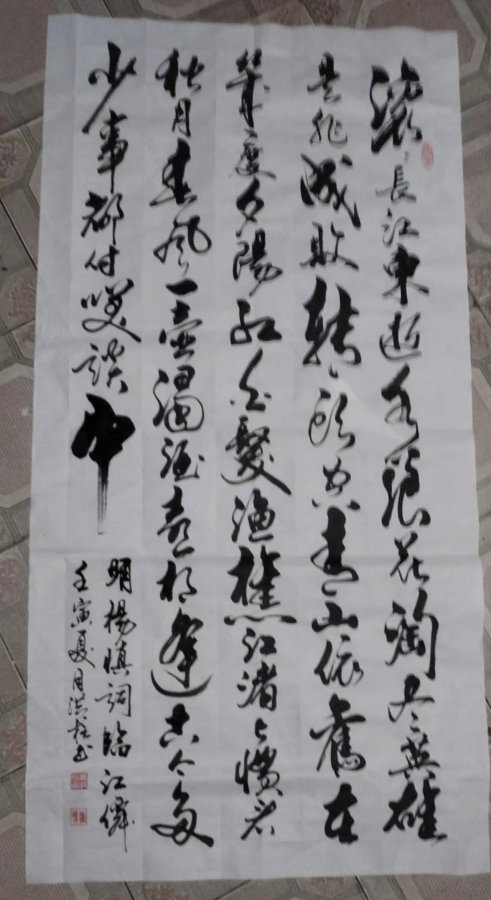 滚々長江東逝水浪花淘尽英雄
是非成敗转头空青山依舊在
幾度夕陽红白髮渔樵江渚上惯看
秋月春风一壶濁酒喜相逢古今多
少事都付笑谈中
明楊慎詞臨江僊
壬寅夏月洪书